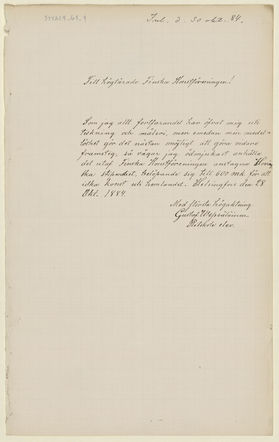 Ink. d. 30 okt. 84.
Till högtärade Finska Konstföreningen!
Som jag allt fortfarande har öfvat mig uti
teckning och måleri, men emedan min medel-
löshet gör det nästan omöjligt att göra vidare
framsteg, så vågar jag ödmjukast anhålla
det utaf Finska Konstföreningen mottagna
ska stipendiet, belöpande sig till 600 mk för att
idka konst uti hemlandet. Helsingfors den 28
Okt. 1884.
Med största högaktning
Gustaf
Ritskole elev.